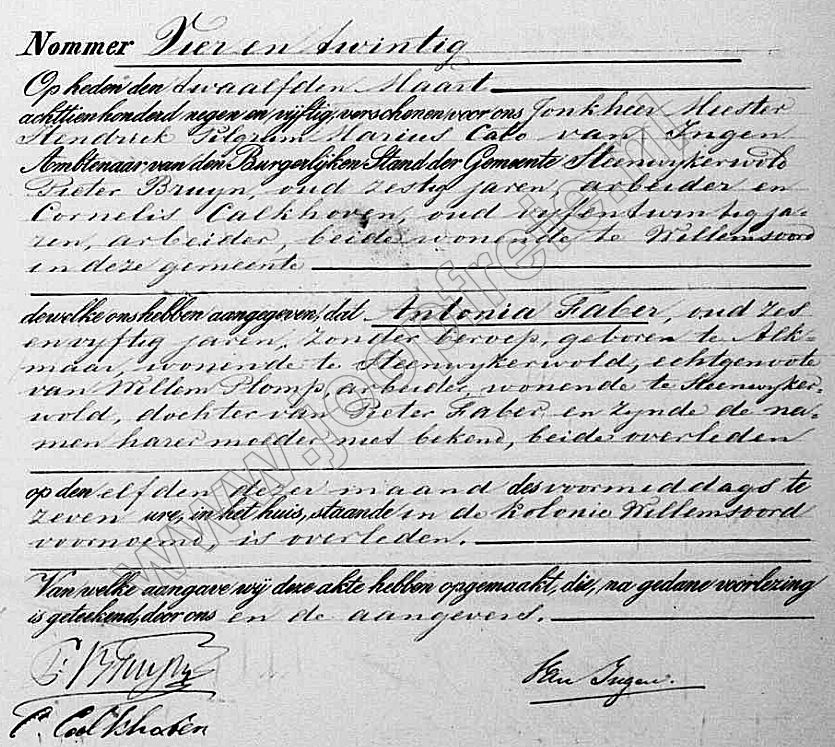 Nommer Vier en twintig
Op heden den twaalfden Maart
achttienhonderd negen en vijftig, verschenen voor ons Jonkheer Meester
Hendrik Pelgrum Marius Calo van Ingen
Ambtenaar van den Burgerlijken Stand der Gemeente Steenwykerwold
Pieter Bruyn, oud zestig jaren, arbeider en
Cornelis Calkhoven, oud vyfentwintig ja-
ren, arbeider, beide wonende te Willemsoord
in deze gemeente
dewelke ons hebben aangegeven, dat Antonia Faber, oud zes
en vyftig jaren, zonder beroep, geboren te Alk-
maar, wonende te Steenwykerwold, echtgenoote
van Willem Plomp, arbeider, wonende te Steenwyker-
wold, dochter van Pieter Faber, en zynde de na-
men harer moeder niet bekend, beide overleden
op den elfden dezer maand des voormiddags te
zeven ure, in het huis, staande in de kolonie Willemsoord
voornoemd, is overleden.
Van welke aangave wij deze akte hebben opgemaakt, die, na gedane voorlezing
is geteekend, door ons en de aangevers.
P: Bruyn
Van Ingen.
C. Coelkhoven
www.jaapfreie.nl